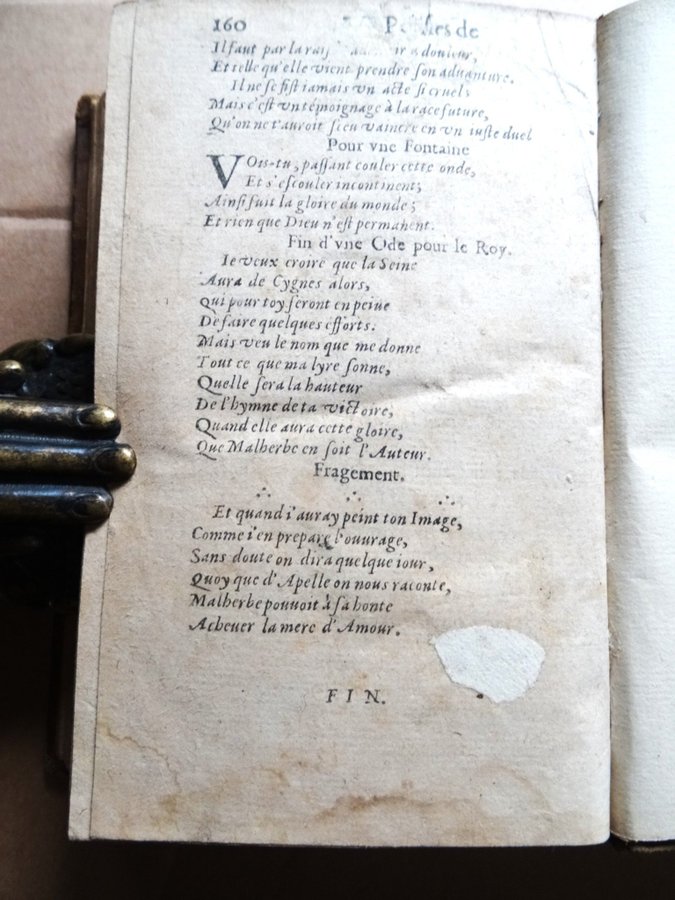 160 de
Il faut par la douleur,
Et telle qu'elle vient prendre son aduanture.
Il ne se fist iamais vn acte si cruel;
Mais c'est vn témoignage à la race future,
Qu'on ne t'auroit sceu vaincre en vn iuste duel
Pour vne Fontaine
VOis-tu, passant couler cette onde,
Et s'escouler incontinent;
Ainsi fuit la gloire du monde;
Et rien que Dieu n'est permanent.
Fin d'vne Ode pour le Roy.
Ie veux croire que la Seine
Aura de Cygnes alors,
Qui pour toy seront en peine
De faire quelques efforts.
Mais veu le nom que me donne
Tout ce que ma lyre sonne,
Quelle sera la hauteur
De l'hymne de ta victoire,
Quand elle aura cette gloire,
Que Malherbe en soit l'Auteur.
Fragement.
Et quand i'auray peint ton Image,
Comme i'en prepare l'ouurage,
Sans doute on dira quelque iour,
Quoy que d'Apelle on nous raconte,
Malherbe pouuoit à sa honte
Acheuer la mere d'Amour.
FIN.